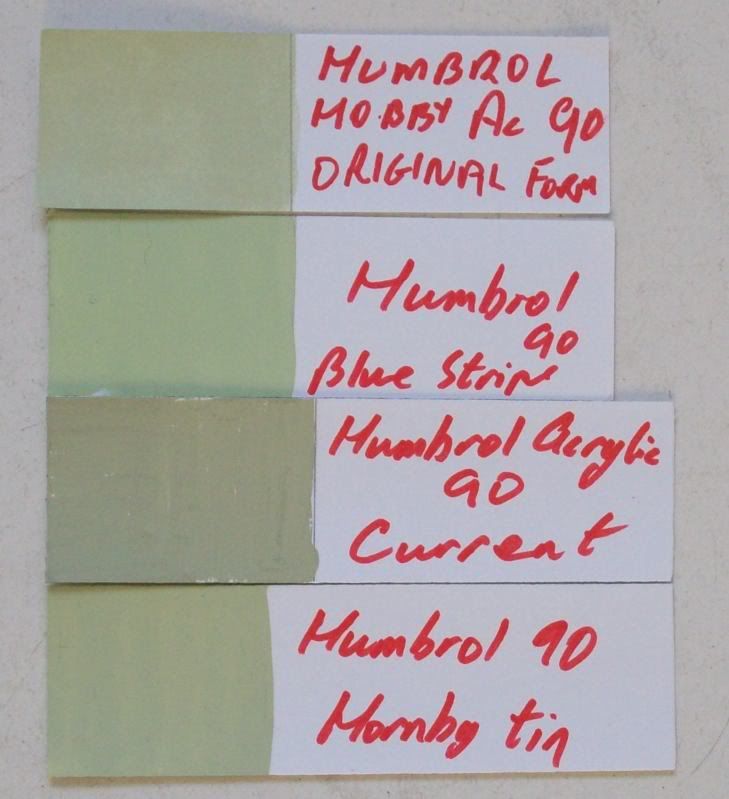 HUMBROL
HOBBY Ac 90
ORIGINAL FORM
Humbrol
90
Blue Stripe
Humbrol Acrylic
90
Current
Humbrol 90
Hornby tin